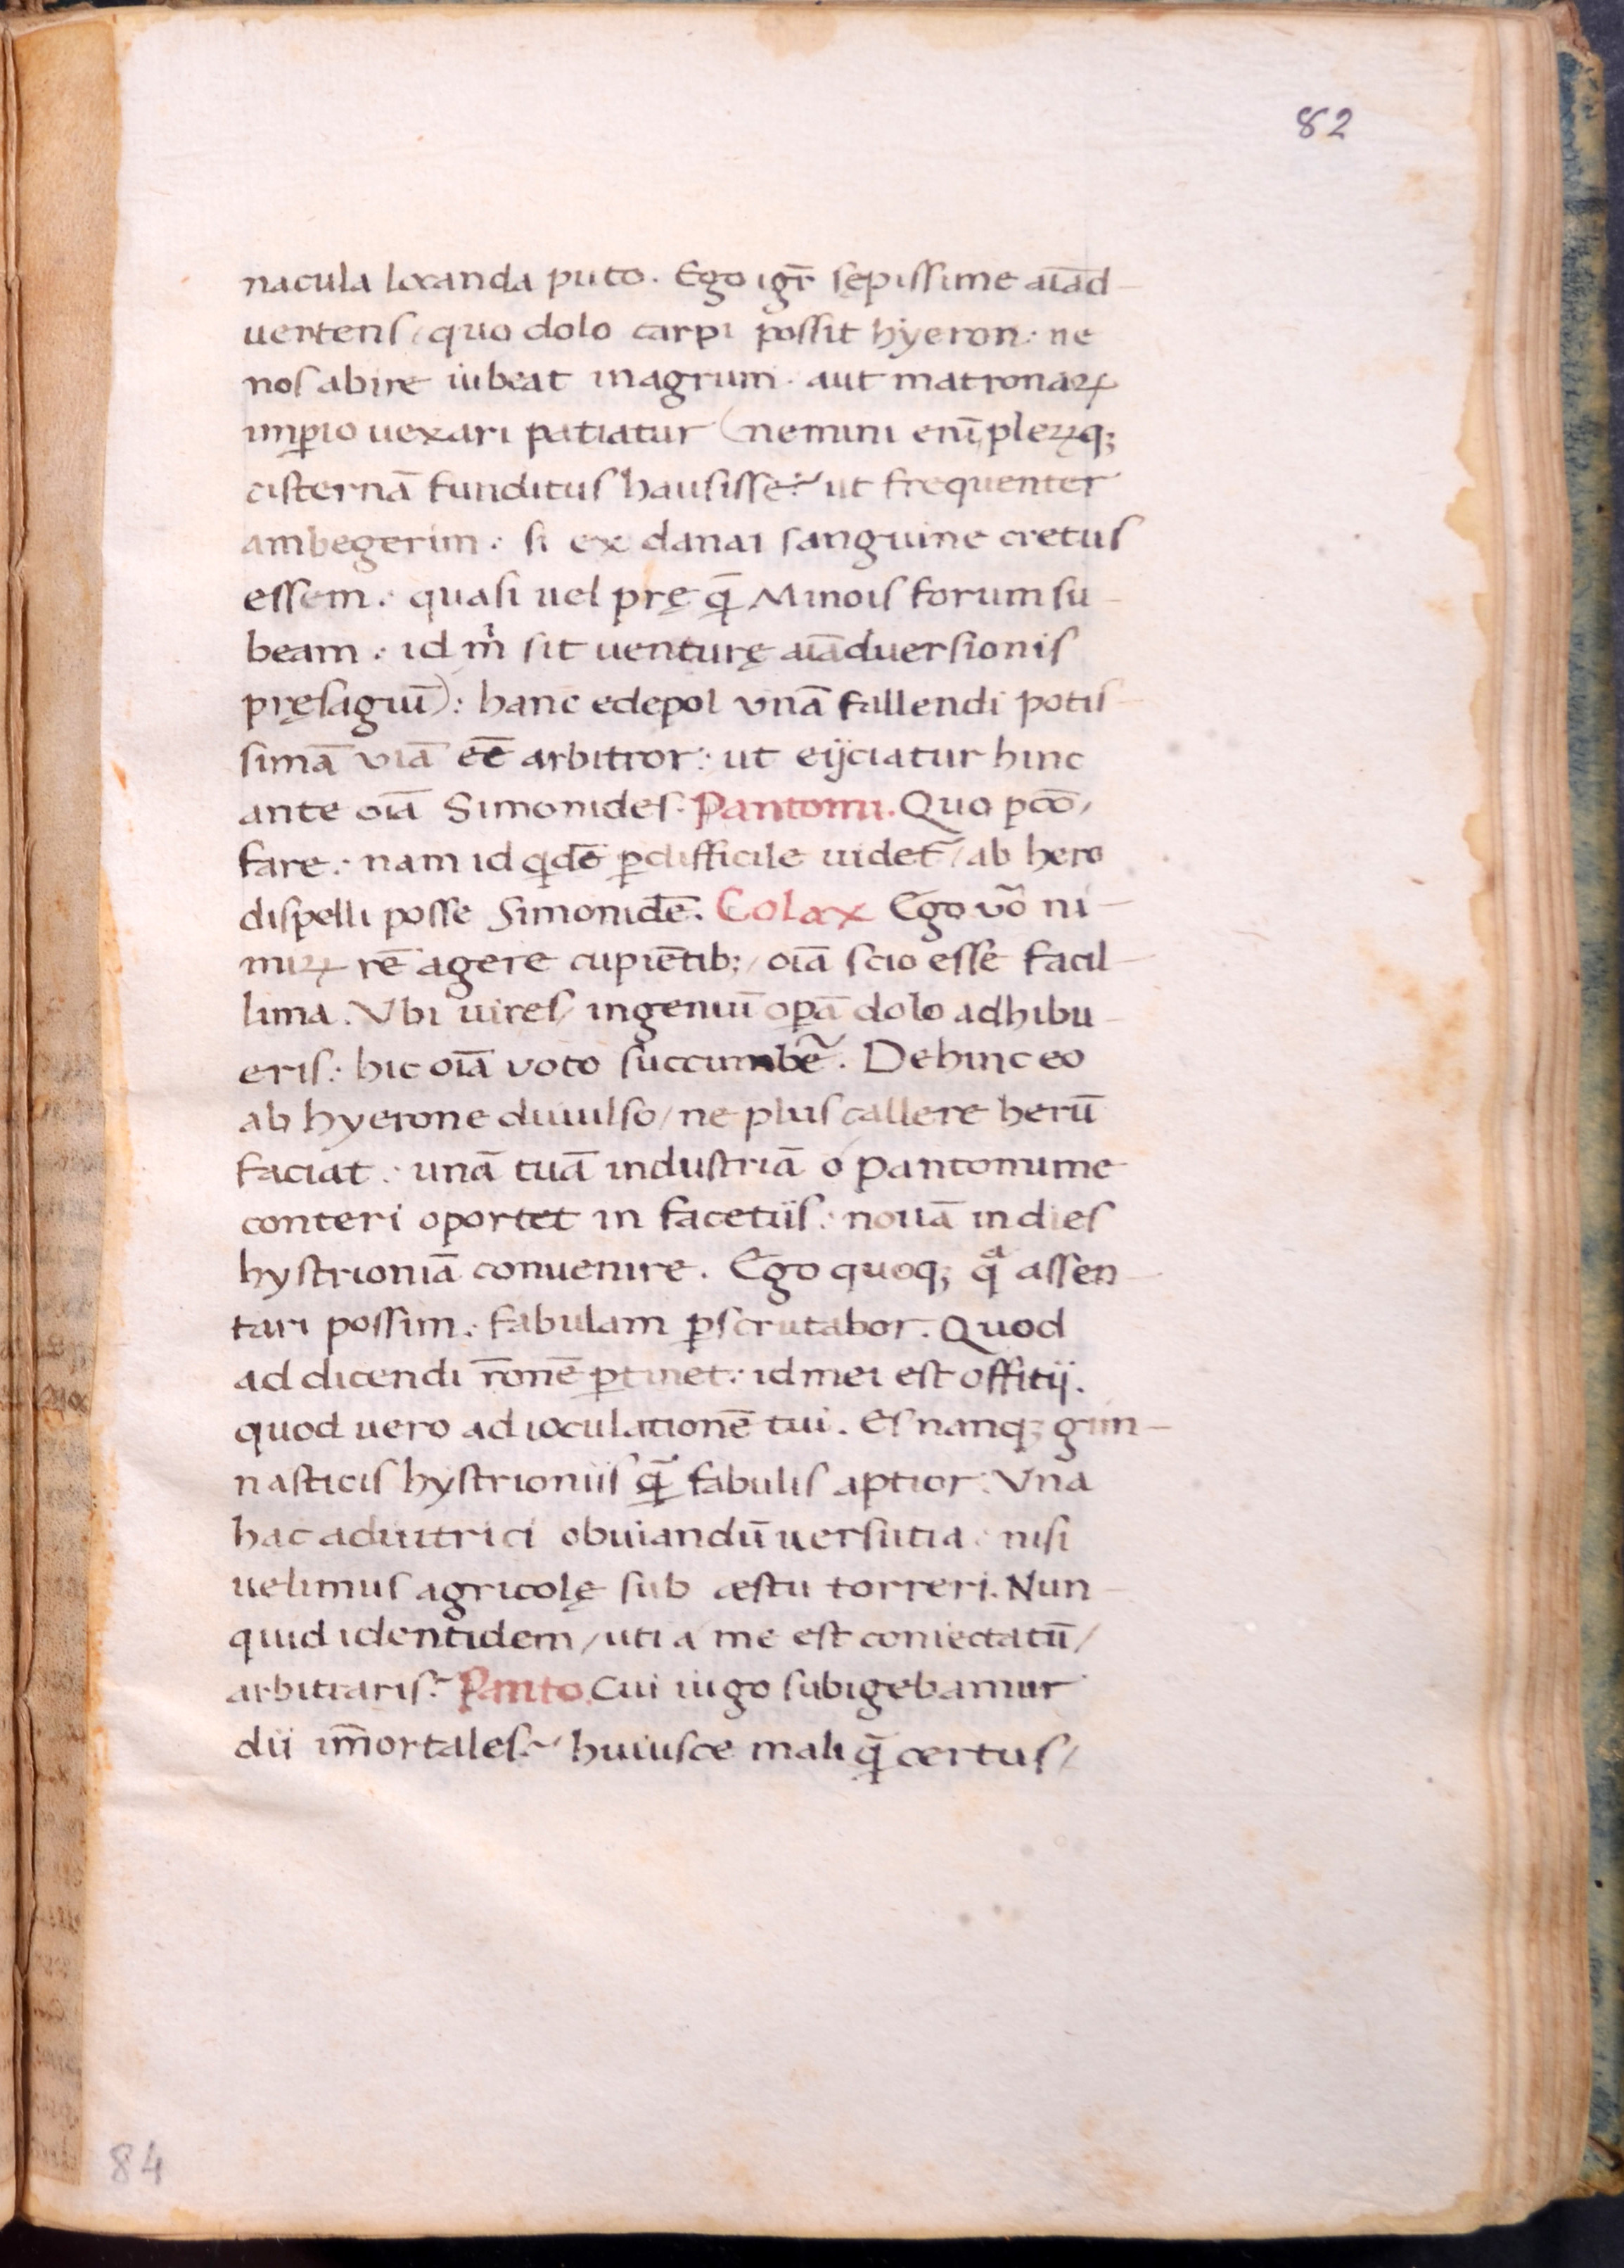 82
nacula laxanda puto. Ego igr̄ sępissime aīad-
uertens/ quo dolo carpi possit hyeron: ne
nos abire iubeat in agrum. aut matronaꝝ
imꝑio uexari patiatur (nemini enī pleꝝqꝫ
cisternā funditus hausisse? ut frequenter
ambegerim: si ex danai sanguine cretus
essem: quasi uel pręq̄ Minois forum su-
beam: id m̊ sit venturę aīaduersionis
pręsagiū): hanc edepol vnā fallendi potis-
simā viā eē arbitror: ut eijciatur hinc
ante oīa Simonides. Pantomi. Quo pcō/
fare: nam id qͥdē ꝑdifficile uidet̄/ ab hero
dispelli posse Simonidē. Colax Ego vō ni-
miꝝ rē agere cupiētibꝫ/ oīa scio esse facil-
lima. Vbi uires/ ingeniū oꝑā dolo adhibu-
eris: hic oīa voto succumbēt. Dehinc eo
ab hyerone diuulso/ ne plus callere herū
faciat: unā tuā industriā ó pantomime
conteri oportet in facetiis: nouā in dies
hystrioniā conuenire. Ego quoqꝫ qͣ assen-
tari possim: fabulam ꝑscrutabor. Quod
ad dicendi rōnē ꝑtinet: id mei est offitij.
quod uero ad ioculationē tui. Es nanqꝫ gim-
nasticis hystrioniis q̄ fabulis aptior: Vna
hac adiutrici obuiandū uersutia: nisi
uelimus agricolę sub æstu torreri. Nun-
quid identidem/ uti a me est coniectatū/
arbitraris? Panto. Cui iugo subigebamur
dii īmortales? huiusce mali q̄ certus/
84